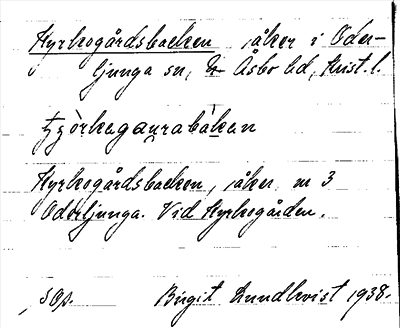 Kyrkogårdsbacken åker i Oder-
ljunga sn, N Åsbo hd, Krist. l.
Kyrkogårdsbacken, åker, nr 3
Oderljunga. Vid Kyrkogården.
Sop. Birgit Lundkvist 1938.